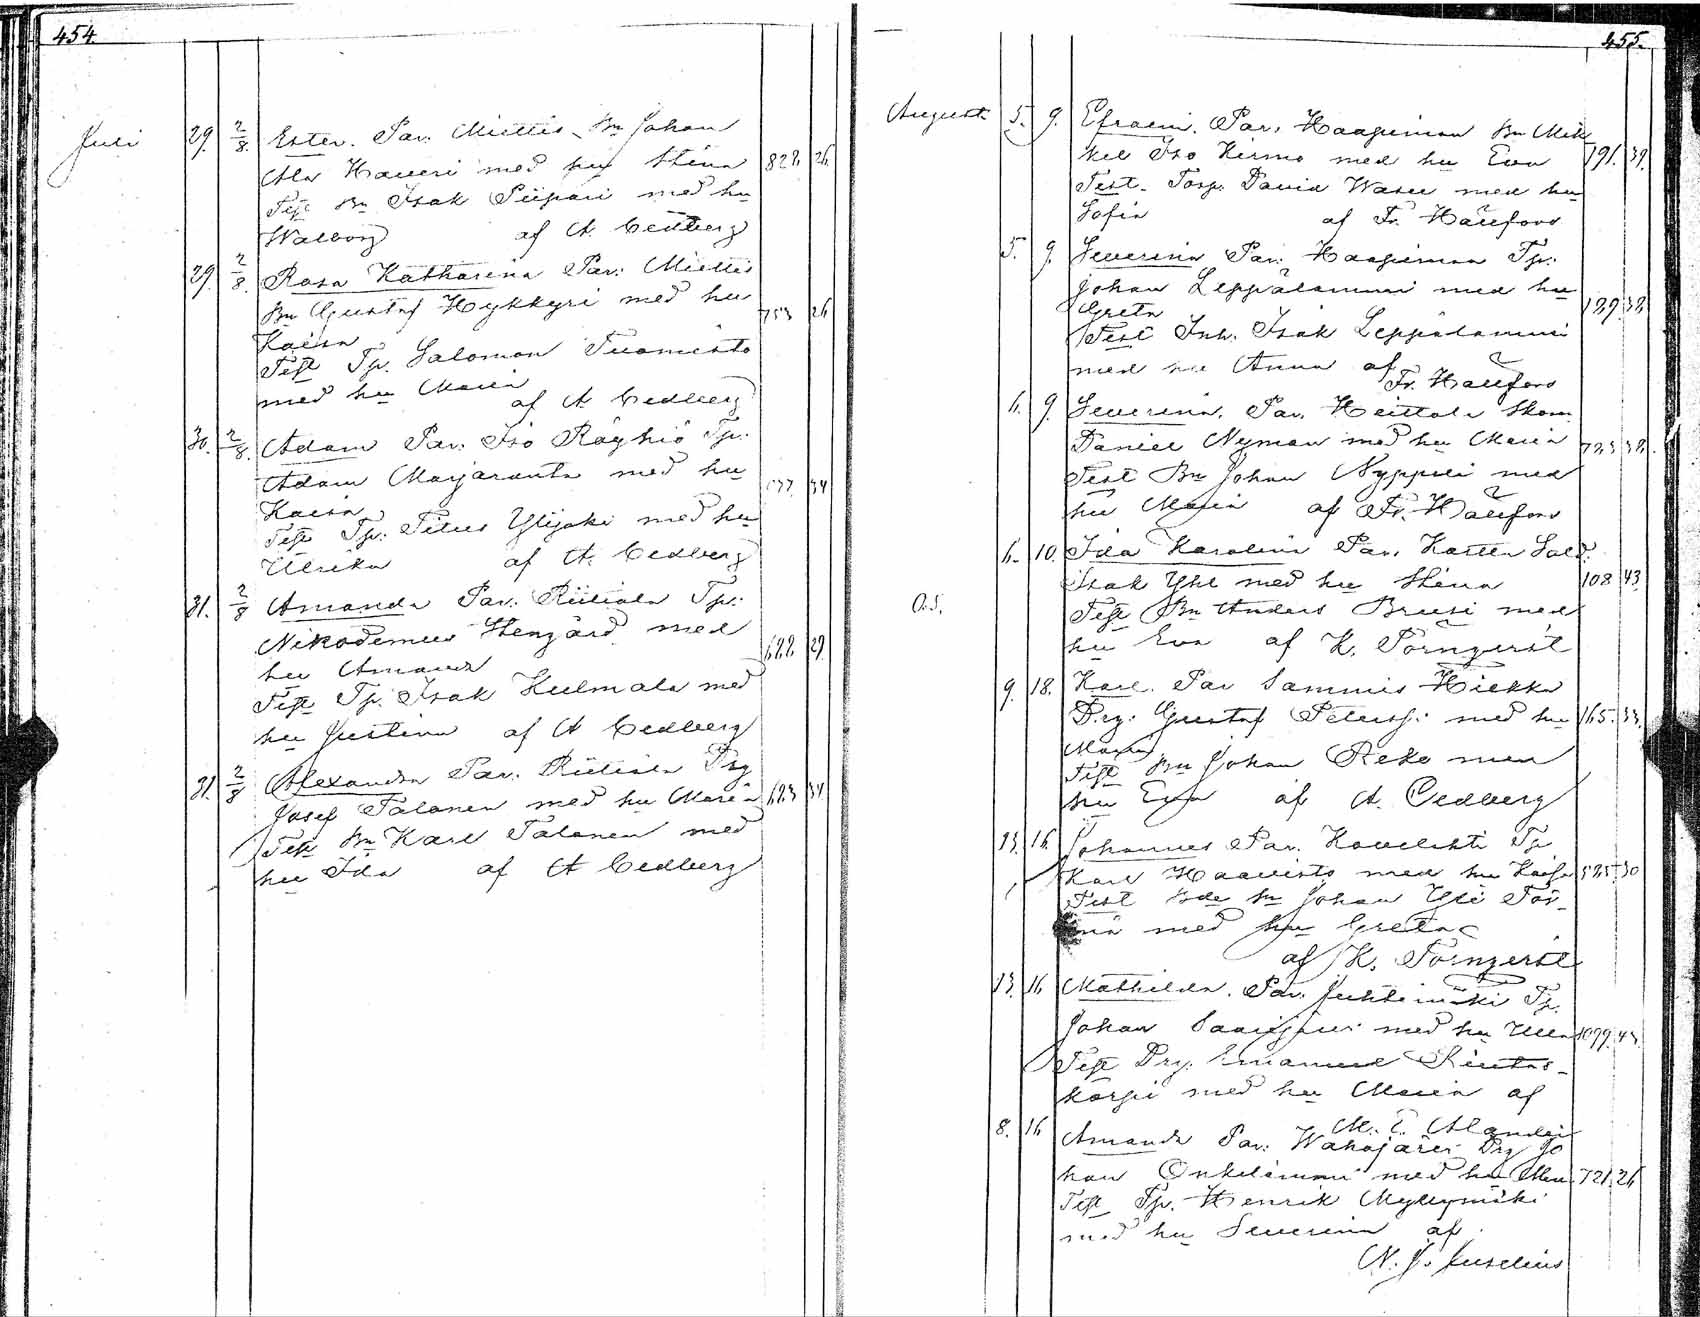 454
Juli
29. 2/8. Ester. Par. Miettis Bn Johan
Ala Haveri med hu Stina 828. 26.
Test Bn Isak Piipari med hu
Walborg af A. Cedberg
29. 2/8. Rosa Katharina Par: Miettis
Bn Gustaf Hykkyri med hu 753 26
Kaisa
Test Tp. Salomon Tuomisto
med hu Maria
af A. Cedberg
30. 2/8. Adam Par. Iso Röyhiö Tp.
Adam Marjaranta med hu 34
Kaisa
Test Tp. Titus Ylijoki med hu
Ulrika af A. Cedberg
31. 2/8 Amanda Par. Riitiala Tp.
Nikodemus Stengård med 622. 29.
hu Amanda
Test Tp. Isak Kulmala med
hu Justina af A Cedberg
31. 2/8 Alexandra Par. Riitiala Drg
Josef Talonen med hu Maria 623 34
Test Bn Karl Talonen med
hu Ida af A Cedberg
455.
August 5. 9. Efraim. Par. Haapimaa Bn Mik
kel Iso Kirmo med hu Eva 191. 39.
Test. Torp. David Wasu med hu
Sofia af Fr. Hällfors
5. 9. Severina Par. Haapimaa Tp.
Johan Leppälammi med hu
Greta 129. 32.
Test Inh. Isak Leppälammi
med hu Anna af
Fr. Hällfors
6. 9. Severina. Par. Heittola Skom.
Daniel Nyman med hu Maria 723 32.
Test Bn Johan Nyppeli med
hu Maria af Fr. Hällfors
6. 10. Ida Karolina Par. Kartta Sold.
Isak Yhl med hu Stina 108 43
O.S. Test Bn Anders Bruusi med
hu Eva af K. Törnqvist
9. 18. Karl. Par Sammis Hiekka
Drg. Gustaf Petersf. med hu 165. 33.
Maria
Test Bn Johan Reko med
hu Eva af A. Cedberg
13. 16. Johannes Par. Kovelahti Tp.
Karl Haavisto med hu Kaisa 525. 30
Test Bde Sn Johan Yli Tör-
mä med hu Greta
af K. Törnqvist
13. 16 Mathilda. Par. Juhtimäki Tp.
Johan Saarijärvi med hu Ulla 1099. 43.
Test Drg. Emanuel Rintas-
korpi med hu Maria af
M. E. Alander
8. 16 Amanda Par. Wahojärvi Drg Jo
han Onkilammi med hu 721. 26
Test Tp. Henrik Myllymäki
med hu Severina af
N. J. Juselius